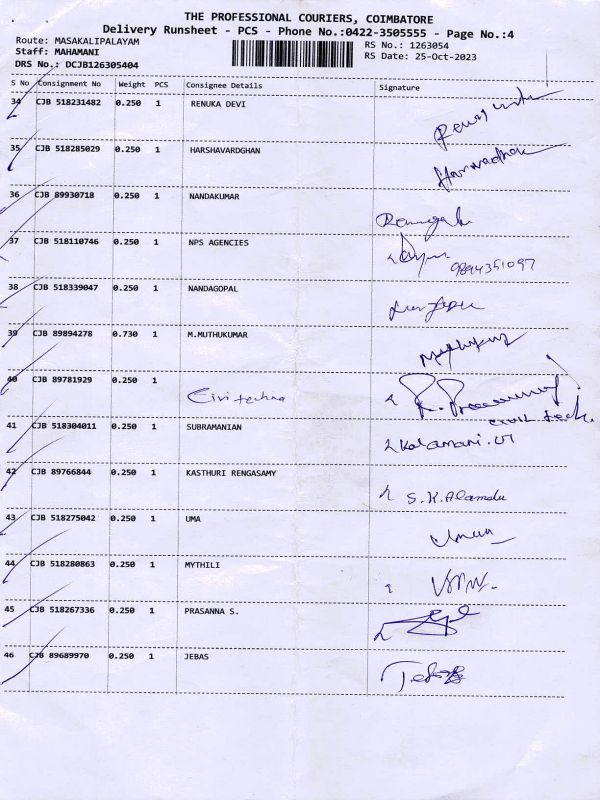 THE PROFESSIONAL COURIERS, COIMBATORE
Delivery Runsheet - PCS - Phone No.:0422-3505555 - Page No.:4
Route: MASAKALIPALAYAM
RS No.: 1263054
Staff: MAHAMANI
RS Date: 25-Oct-2023
DRS No.: DCJB126305404
S No Consignment No Weight PCS Consignee Details Signature
34 CJB 518231482 0.250 1 RENUKA DEVI
35 CJB 518285029 0.250 1 HARSHAVARDGHAN
36 CJB 89930718 0.250 1 NANDAKUMAR
37 CJB 518110746 0.250 1 NPS AGENCIES
9894351097
38 CJB 518339047 0.250 1 NANDAGOPAL
39 CJB 89894278 0.730 1 M.MUTHUKUMAR
40 CJB 89781929 0.250 1 Civi techno
41 CJB 518304011 0.250 1 SUBRAMANIAN
Kalamani.
42 CJB 89766844 0.250 1 KASTHURI RENGASAMY
S.K.Alamelu
43 CJB 518275042 0.250 1 UMA
44 CJB 518280863 0.250 1 MYTHILI
45 CJB 518267336 0.250 1 PRASANNA S.
46 CJB 89689970 0.250 1 JEBAS